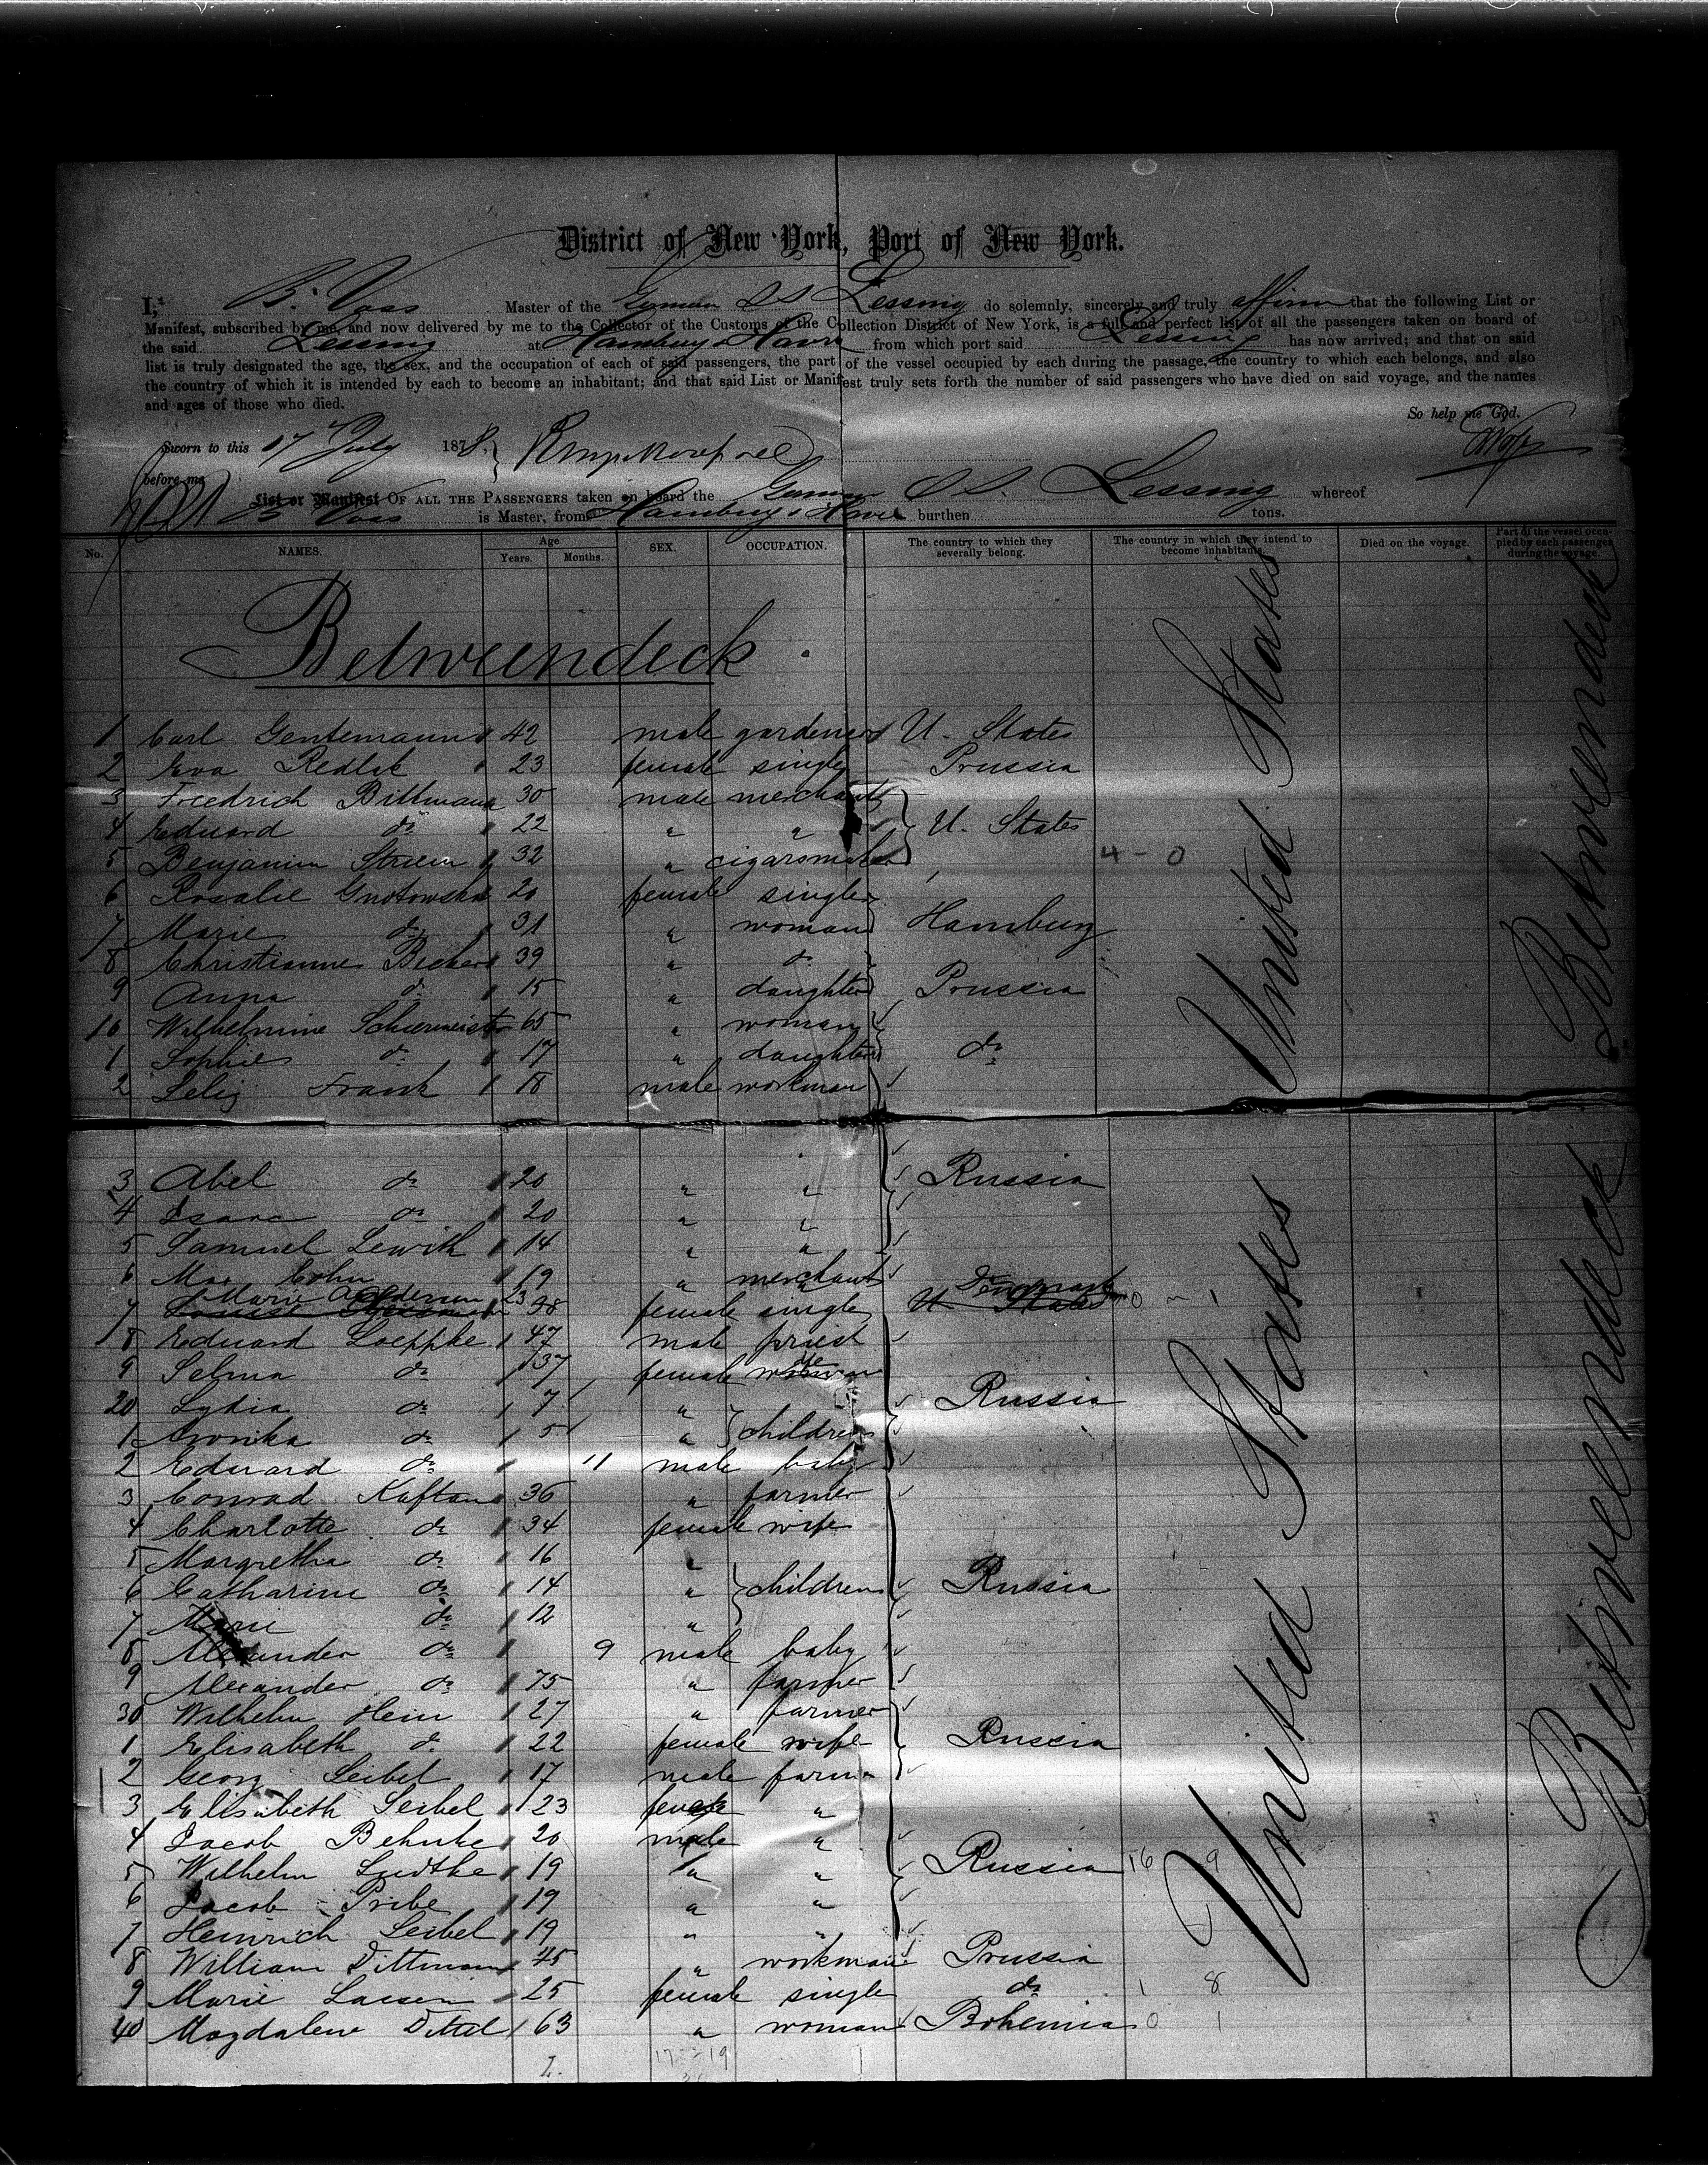 District of New York, Port of New York.
I, B. Voss Master of the German SS Lessing do solemnly, sincerely and truly affirm that the following List or
Manifest, subscribed by me, and now delivered by me to the Collector of the Customs of the Collection District of New York, is a full and perfect list of all the passengers taken on board of
the said Lessing at Hamburg & Havre from which port said Lessing has now arrived; and that on said
list is truly designated the age, the sex, and the occupation of each of said passengers, the part of the vessel occupied by each during the passage, the country to which each belongs, and also
the country of which it is intended by each to become an inhabitant; and that said List or Manifest truly sets forth the number of said passengers who have died on said voyage, and the names
and ages of those who died.
So help me God.
Sworn to this 17 July 1878
before me
List or Manifest OF ALL THE PASSENGERS taken on board the German SS. Lessing whereof
B Voss is Master, from Hamburg & Havre burthen tons.
No. NAMES. Age Years. Months. SEX. OCCUPATION. The country to which they severally belong. The country in which they intend to become inhabitants. Died on the voyage. Part of the vessel occupied by each passenger during the voyage.
Betweendeck
1 Carl Gentemann 42 male gardener U. States
2 Eva Redlak 23 female single Prussia
3 Friedrich Billmann 30 male merchant
4 Eduard do 22 " " U. States
5 Benjamin 32 " cigarsmaker 4 - 0
6 Rosalie Gnotowska 20 female single
7 Marie do 31 " woman Hamburg
8 Christianne Becker 39 " do
9 Anna do 15 " daughter Prussia
10 Wilhelmine Schermeister 65 " woman
1 Sophie do 17 " daughter do
2 Selig Frank 18 male workman
3 Abel do 20 " " Russia
4 Isaac do 20 " "
5 Samuel Lewith 14 " "
6 Max Cohn 19 " merchant
Marie 23 Denmark
7 38 female single U. States 0 - 1
8 Eduard Loeppke 47 male priest
9 Selma do 37 female
20 Lydia do 7 " Russia
1 do 5 " children
2 Eduard do 11 male baby
3 Conrad Kaftan 36 " farmer
4 Charlotte do 34 female wife
5 Margretha do 16 "
6 Catharine do 14 " children Russia
7 Marie do 12 "
8 Alexander do 9 male baby
9 Alexander do 75 " farmer
30 Wilhelm Hein 27 " farmer
1 Elisabeth do 22 female wife Russia
2 Georg Seibel 17 male farmer
3 Elisabeth Seibel 23 female "
4 Jacob Behnke 20 male "
5 Wilhelm Ludtke 19 " " Russia 16 9
6 Jacob Pribe 19 " "
7 Heinrich Seibel 19 " "
8 William Dittmann 45 " workman Prussia
9 Marie Larsen 25 female single do 1 8
40 Magdalene Dittel 63 " woman Bohemia 0 1
17 - 19
United States
United States
Betweendeck
Betweendeck